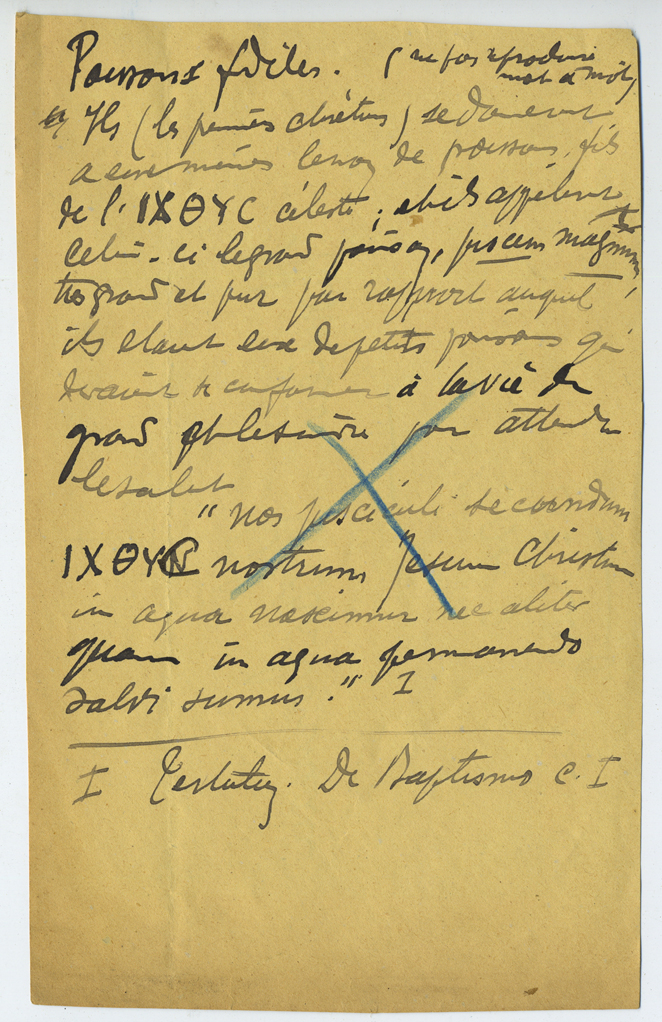 Poissons fidèles. (ne pas reproduire
mot à mot)
Ils (les premiers chrétiens) se donnaient
à eux mêmes le nom de poissons, fils
de l'ΙΧΘΥC céleste ; et ils appelaient
celui-ci le grand poisson, piscem magnum,
très grand et pur par rapport auquel
ils étaient eux de petits poissons qui
devaient se conformer à la vie du
grand et le suivre pour attendre
le salut
"Nos pisciculi secundum
ΙΧΘΥΝ nostrum Jesum Christum
in aqua nascimur nec aliter
quam in aqua permanendo
salvi sumus." I
I Tertulien. De Baptismo c. I